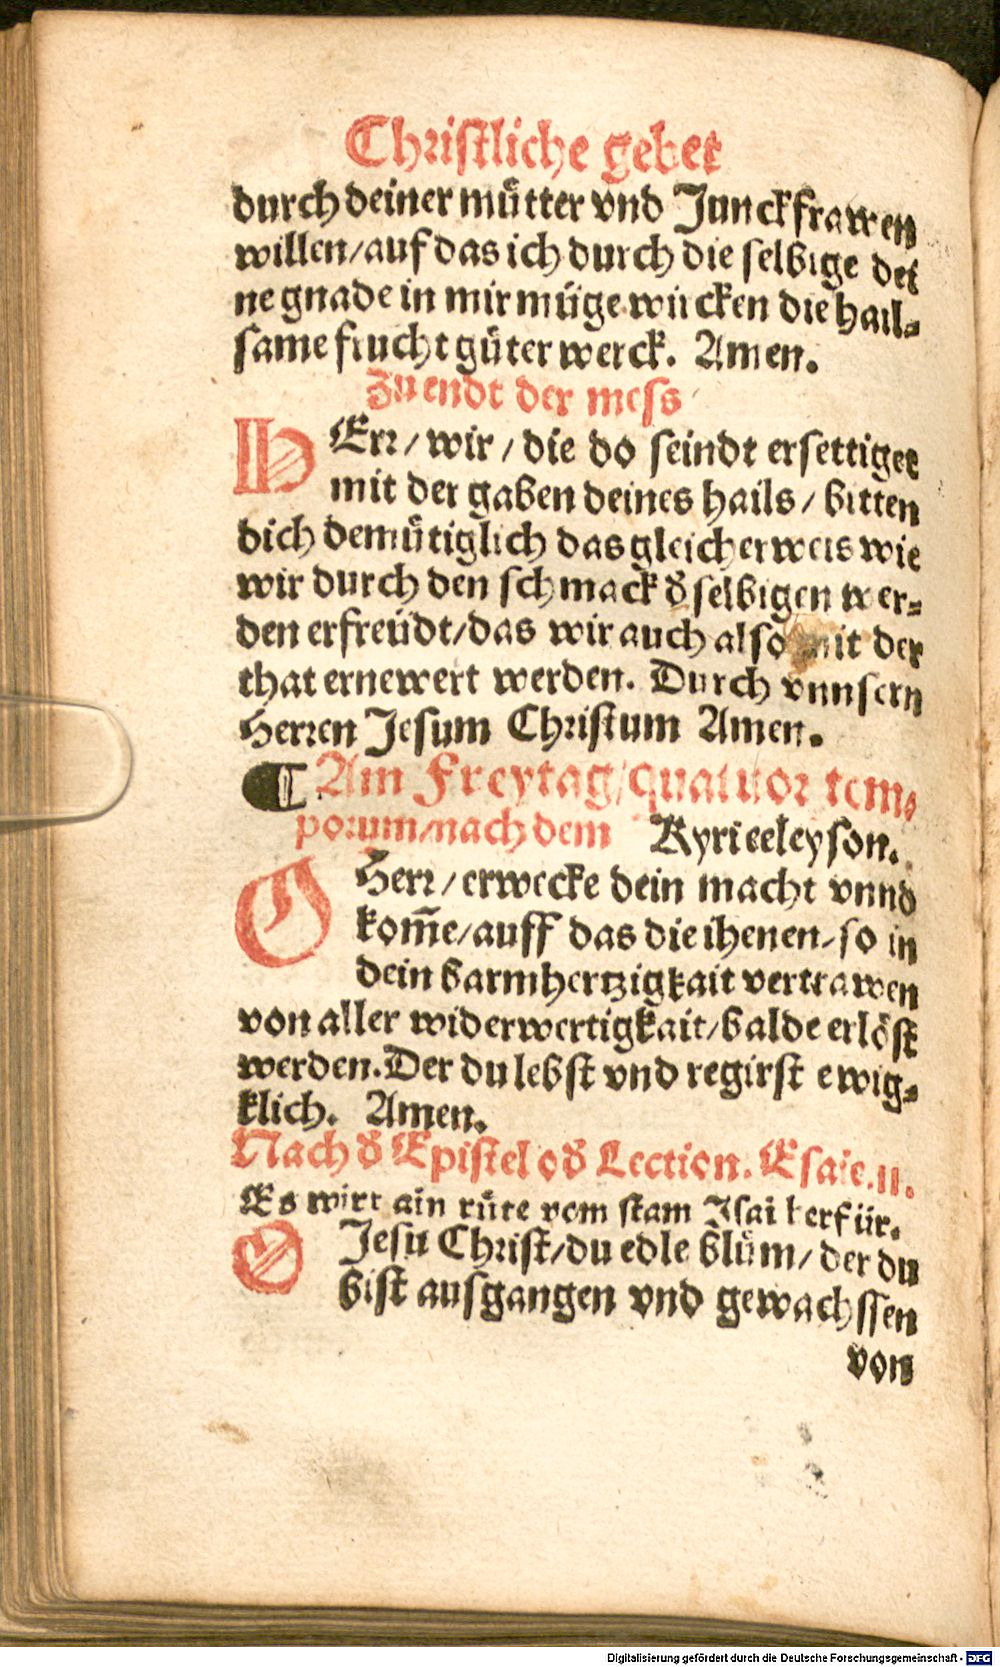 Christliche gebet
durch deiner muͤtter vnd Junckfrawen
willen/auf das ich durch die selbige dei
ne gnade in mir muͤge wircken die hail⸗
same frucht guͤter werck. Amen.
zu endt der mess
HErr/ wir/ die do seindt ersettiget
mit der gaben deines hails/ bitten
dich demuͤtiglich das gleicherweis wie
wir durch den schmack d̕ selbigen wer⸗
den erfreüdt/das wir auch also mit der
that ernewert werden. Durch vnnsern
Herren Jesum Christum Amen.
¶ Am Freytag/quatuor tem⸗
porum/nach dem Kyrieeleyson.
O Herr/ erwecke dein macht vnnd
kom̄e/auff das die ihenen/so in
dein barmhertzigkait vertrawen
von aller widerwertigkait/balde erlöst
werden.Der du lebst vnd regirst ewig⸗
klich. Amen.
Nach d̕ Epistel od̕ Lection. Esaie.11.
Es wirt ain ruͤte vom stam Isai herfür.
O Jesu Christ/du edle bluͤm/ der du
bist ausgangen vnd gewachssen
von
Digitalisierung gefördert durch die Deutsche Forschungsgemeinschaft - DFG